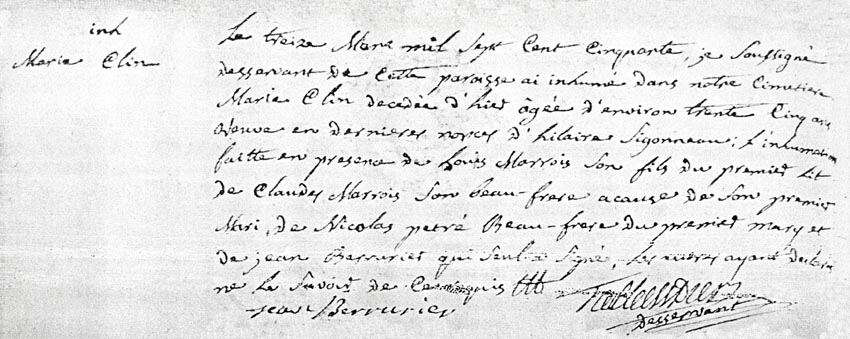 inh
Marie Clin
Le treize Mars mil Sept Cent Cinquante, je Soussigné
desservant de Cette paroisse ai inhumé dans notre Cimetiere
Marie Clin decedée d'hier âgée d'environ trente Cinq ans
Veuve en dernieres nopces d'hilaire Sigonneau; l'inhumation
faitte en presence de Louis Marrois Son fils du premier lit
de Claudes Marrois Son beau-frere acause de Son premier
Mari, de Nicolas petré Beau-frere du premier mary et
de jean Berrurier qui Seul a Signé, Les autres ayant declaré
ne le Savoir de Ce enquis
jean Berrurier
Desservant